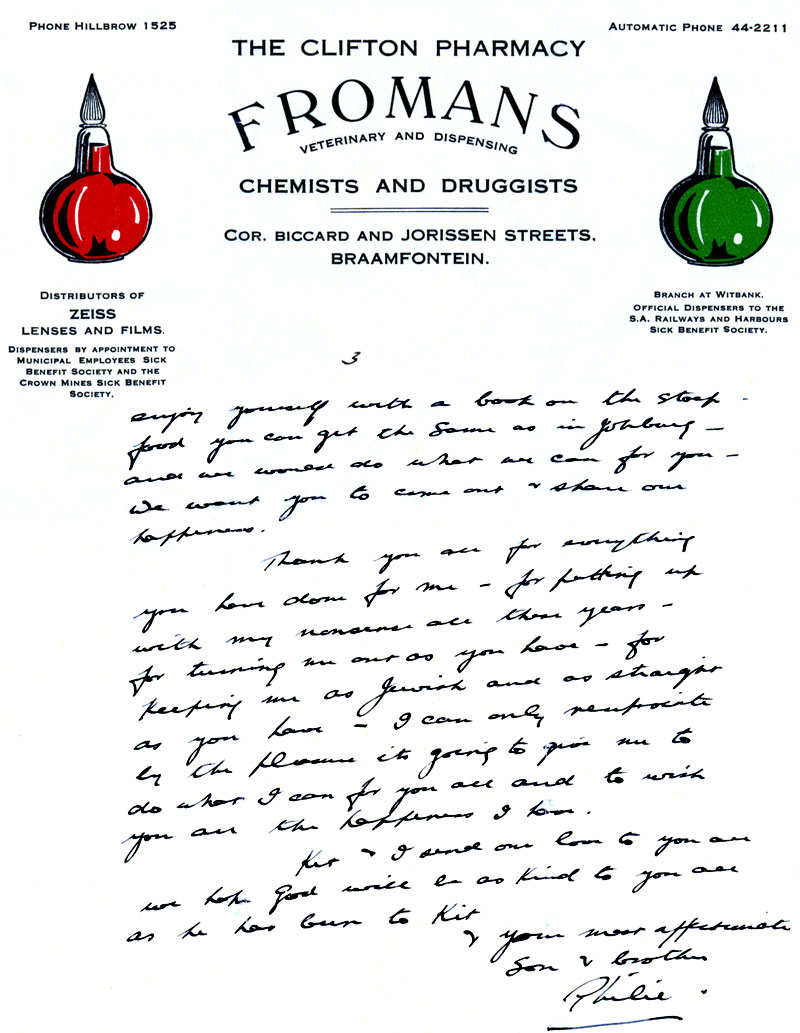 PHONE HILLBROW 1525
AUTOMATIC PHONE 44-2211
THE CLIFTON PHARMACY
FROMANS
VETERINARY AND DISPENSING
CHEMISTS AND DRUGGISTS
COR. BICCARD AND JORISSEN STREETS,
BRAAMFONTEIN.
DISTRIBUTORS OF
ZEISS
LENSES AND FILMS.
DISPENSERS BY APPOINTMENT TO
MUNICIPAL EMPLOYEES SICK
BENEFIT SOCIETY AND THE
CROWN MINES SICK BENEFIT
SOCIETY.
BRANCH AT WITBANK.
OFFICIAL DISPENSERS TO THE
S.A. RAILWAYS AND HARBOURS
SICK BENEFIT SOCIETY.
3
enjoy yourself with a book on the stoep -
food you can get the same as in Johburg -
and we would do what we can for you -
We want you to come out & share our
happiness.
Thank you all for everything
you have done for me - for putting up
with my nonsense all these years -
for turning me out as you have - for
keeping me as Jewish and as straight
as you have - I can only reciprocate
by the pleasure its going to give me to
do what I can for you all and to wish
you all the happiness I have.
Kit & I send our love to you all
we hope God will be as kind to you all
as he has been to Kit
& your most affectionate
Son & brother
Philie.